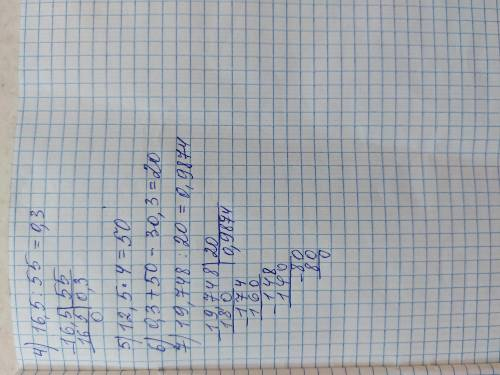 4) 16,5 : 55 = 0,3
-16,5 | 55
165 | 0,3
0
5) 12,5 · 4 = 50
6) 0,3 + 50 - 30,3 = 20
7) 19,748 : 20 = 0,9874
-19,748 | 20
180 | 0,9874
-174
160
-148
140
-80
80
0